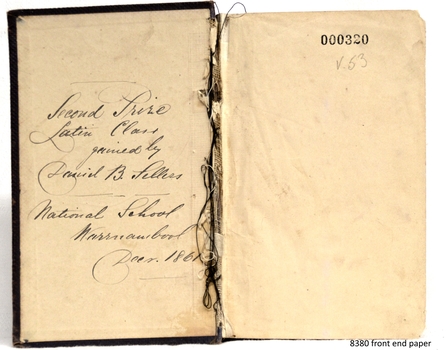 Second Prize
Latin Class
gained by
David B. Sellers
National School
Warrnambool
Decr. 1861
000320
v.53
8380 front end paper